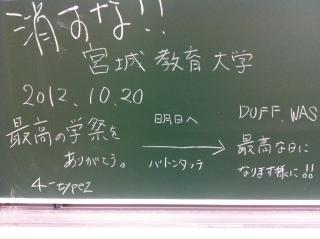 消すな!!
宮城教育大学
2012.10.20
最高の学祭を
ありがとう。
4-type2
明日へ
バトンタッチ
DUFF. WAS
最高な日に
なります様に!!